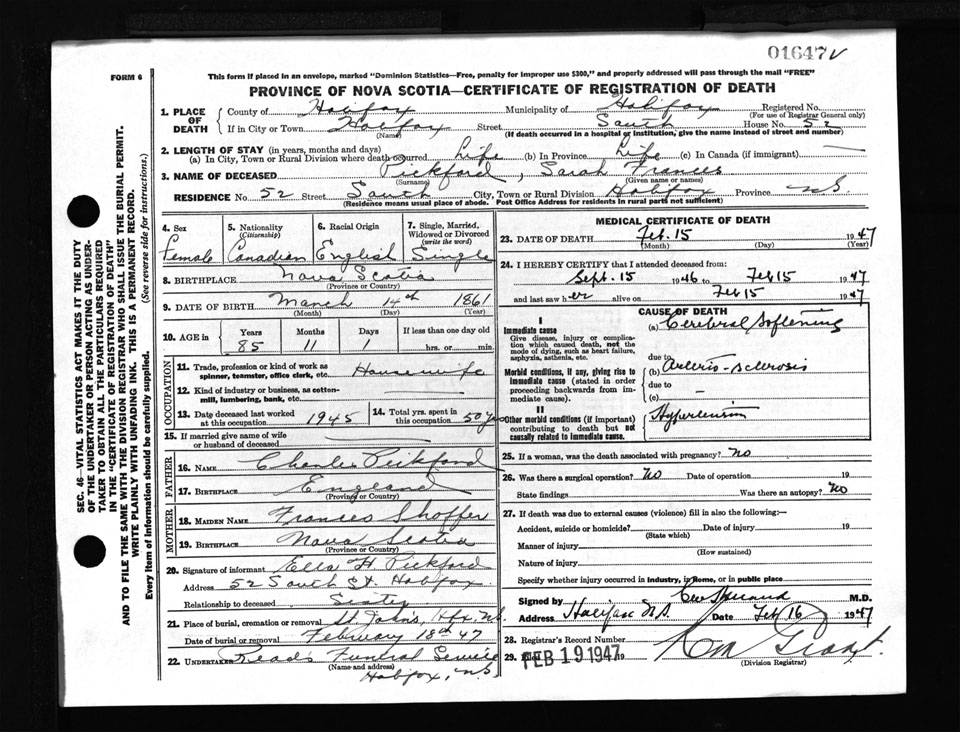 01647 V
FORM 6
This form if placed in an envelope, marked "Dominion Statistics—Free, penalty for improper use $300," and properly addressed will pass through the mail "FREE"
PROVINCE OF NOVA SCOTIA—CERTIFICATE OF REGISTRATION OF DEATH
1. PLACE OF DEATH
County of Halifax Municipality of Halifax Registered No.
(For use of Registrar General only)
If in City or Town Halifax Street South House No. 52
(Name) (If death occurred in a hospital or institution, give the name instead of street and number)
2. LENGTH OF STAY (in years, months and days)
(a) In City, Town or Rural Division where death occurred Life (b) In Province Life (c) In Canada (if immigrant) —
3. NAME OF DECEASED Pickford, Sarah Frances
(Surname) (Given name or names)
RESIDENCE No. 52 Street South City, Town or Rural Division Halifax Province N.S.
(Residence means usual place of abode. Post Office Address for residents in rural parts not sufficient)
4. Sex
Female
5. Nationality (Citizenship)
Canadian
6. Racial Origin
English
7. Single, Married, Widowed or Divorced (write the word)
Single
8. BIRTHPLACE Nova Scotia
(Province or Country)
9. DATE OF BIRTH March 14th 1861
(Month) (Day) (Year)
10. AGE in Years Months Days If less than one day old
85 11 1 hrs. or min.
OCCUPATION
11. Trade, profession or kind of work as spinner, teamster, office clerk, etc. Housewife
12. Kind of industry or business, as cotton-mill, lumbering, bank, etc. —
13. Date deceased last worked at this occupation 1945
14. Total yrs. spent in this occupation 50 yrs
15. If married give name of wife or husband of deceased —
FATHER
16. NAME Charles Pickford
17. BIRTHPLACE England
(Province or Country)
MOTHER
18. MAIDEN NAME Frances Shaffer
19. BIRTHPLACE Nova Scotia
(Province or Country)
20. Signature of informant Ella H. Pickford
Address 52 South St. Halifax
Relationship to deceased Sister
21. Place of burial, cremation or removal St. John's, Hfx, N.S.
Date of burial or removal February 18th 47
22. UNDERTAKER Read's Funeral Service
(Name and address)
Halifax, N.S.
MEDICAL CERTIFICATE OF DEATH
23. DATE OF DEATH Feb. 15 1947
(Month) (Day) (Year)
24. I HEREBY CERTIFY that I attended deceased from:
Sept. 15 1946 to Feb 15 1947
and last saw her alive on Feb 15 1947
CAUSE OF DEATH
I
Immediate cause
Give disease, injury or complication which caused death, not the mode of dying, such as heart failure, asphyxia, asthenia, etc.
(a) Cerebral Softening
due to
Morbid conditions, if any, giving rise to immediate cause (stated in order proceeding backwards from immediate cause).
(b) Arterio-sclerosis
due to —
(c)
II
Other morbid conditions (if important) contributing to death but not causally related to immediate cause.
Hypertension
25. If a woman, was the death associated with pregnancy? No
26. Was there a surgical operation? No Date of operation 19
State findings Was there an autopsy? No
27. If death was due to external causes (violence) fill in also the following:—
Accident, suicide or homicide? Date of injury 19
(State which)
Manner of injury
(How sustained)
Nature of injury
Specify whether injury occurred in industry, in home, or in public place
Signed by M.D.
Address Halifax N.S. Date Feb 16 1947
28. Registrar's Record Number
29. FEB 19 1947 19
(Division Registrar)
SEC. 46—VITAL STATISTICS ACT MAKES IT THE DUTY
OF THE UNDERTAKER OR PERSON ACTING AS UNDER-
TAKER TO OBTAIN ALL THE PARTICULARS REQUIRED
IN THE "CERTIFICATE OF REGISTRATION OF DEATH"
AND TO FILE THE SAME WITH THE DIVISION REGISTRAR WHO SHALL ISSUE THE BURIAL PERMIT.
WRITE PLAINLY WITH UNFADING INK. THIS IS A PERMANENT RECORD.
Every item of information should be carefully supplied. (See reverse side for instructions.)